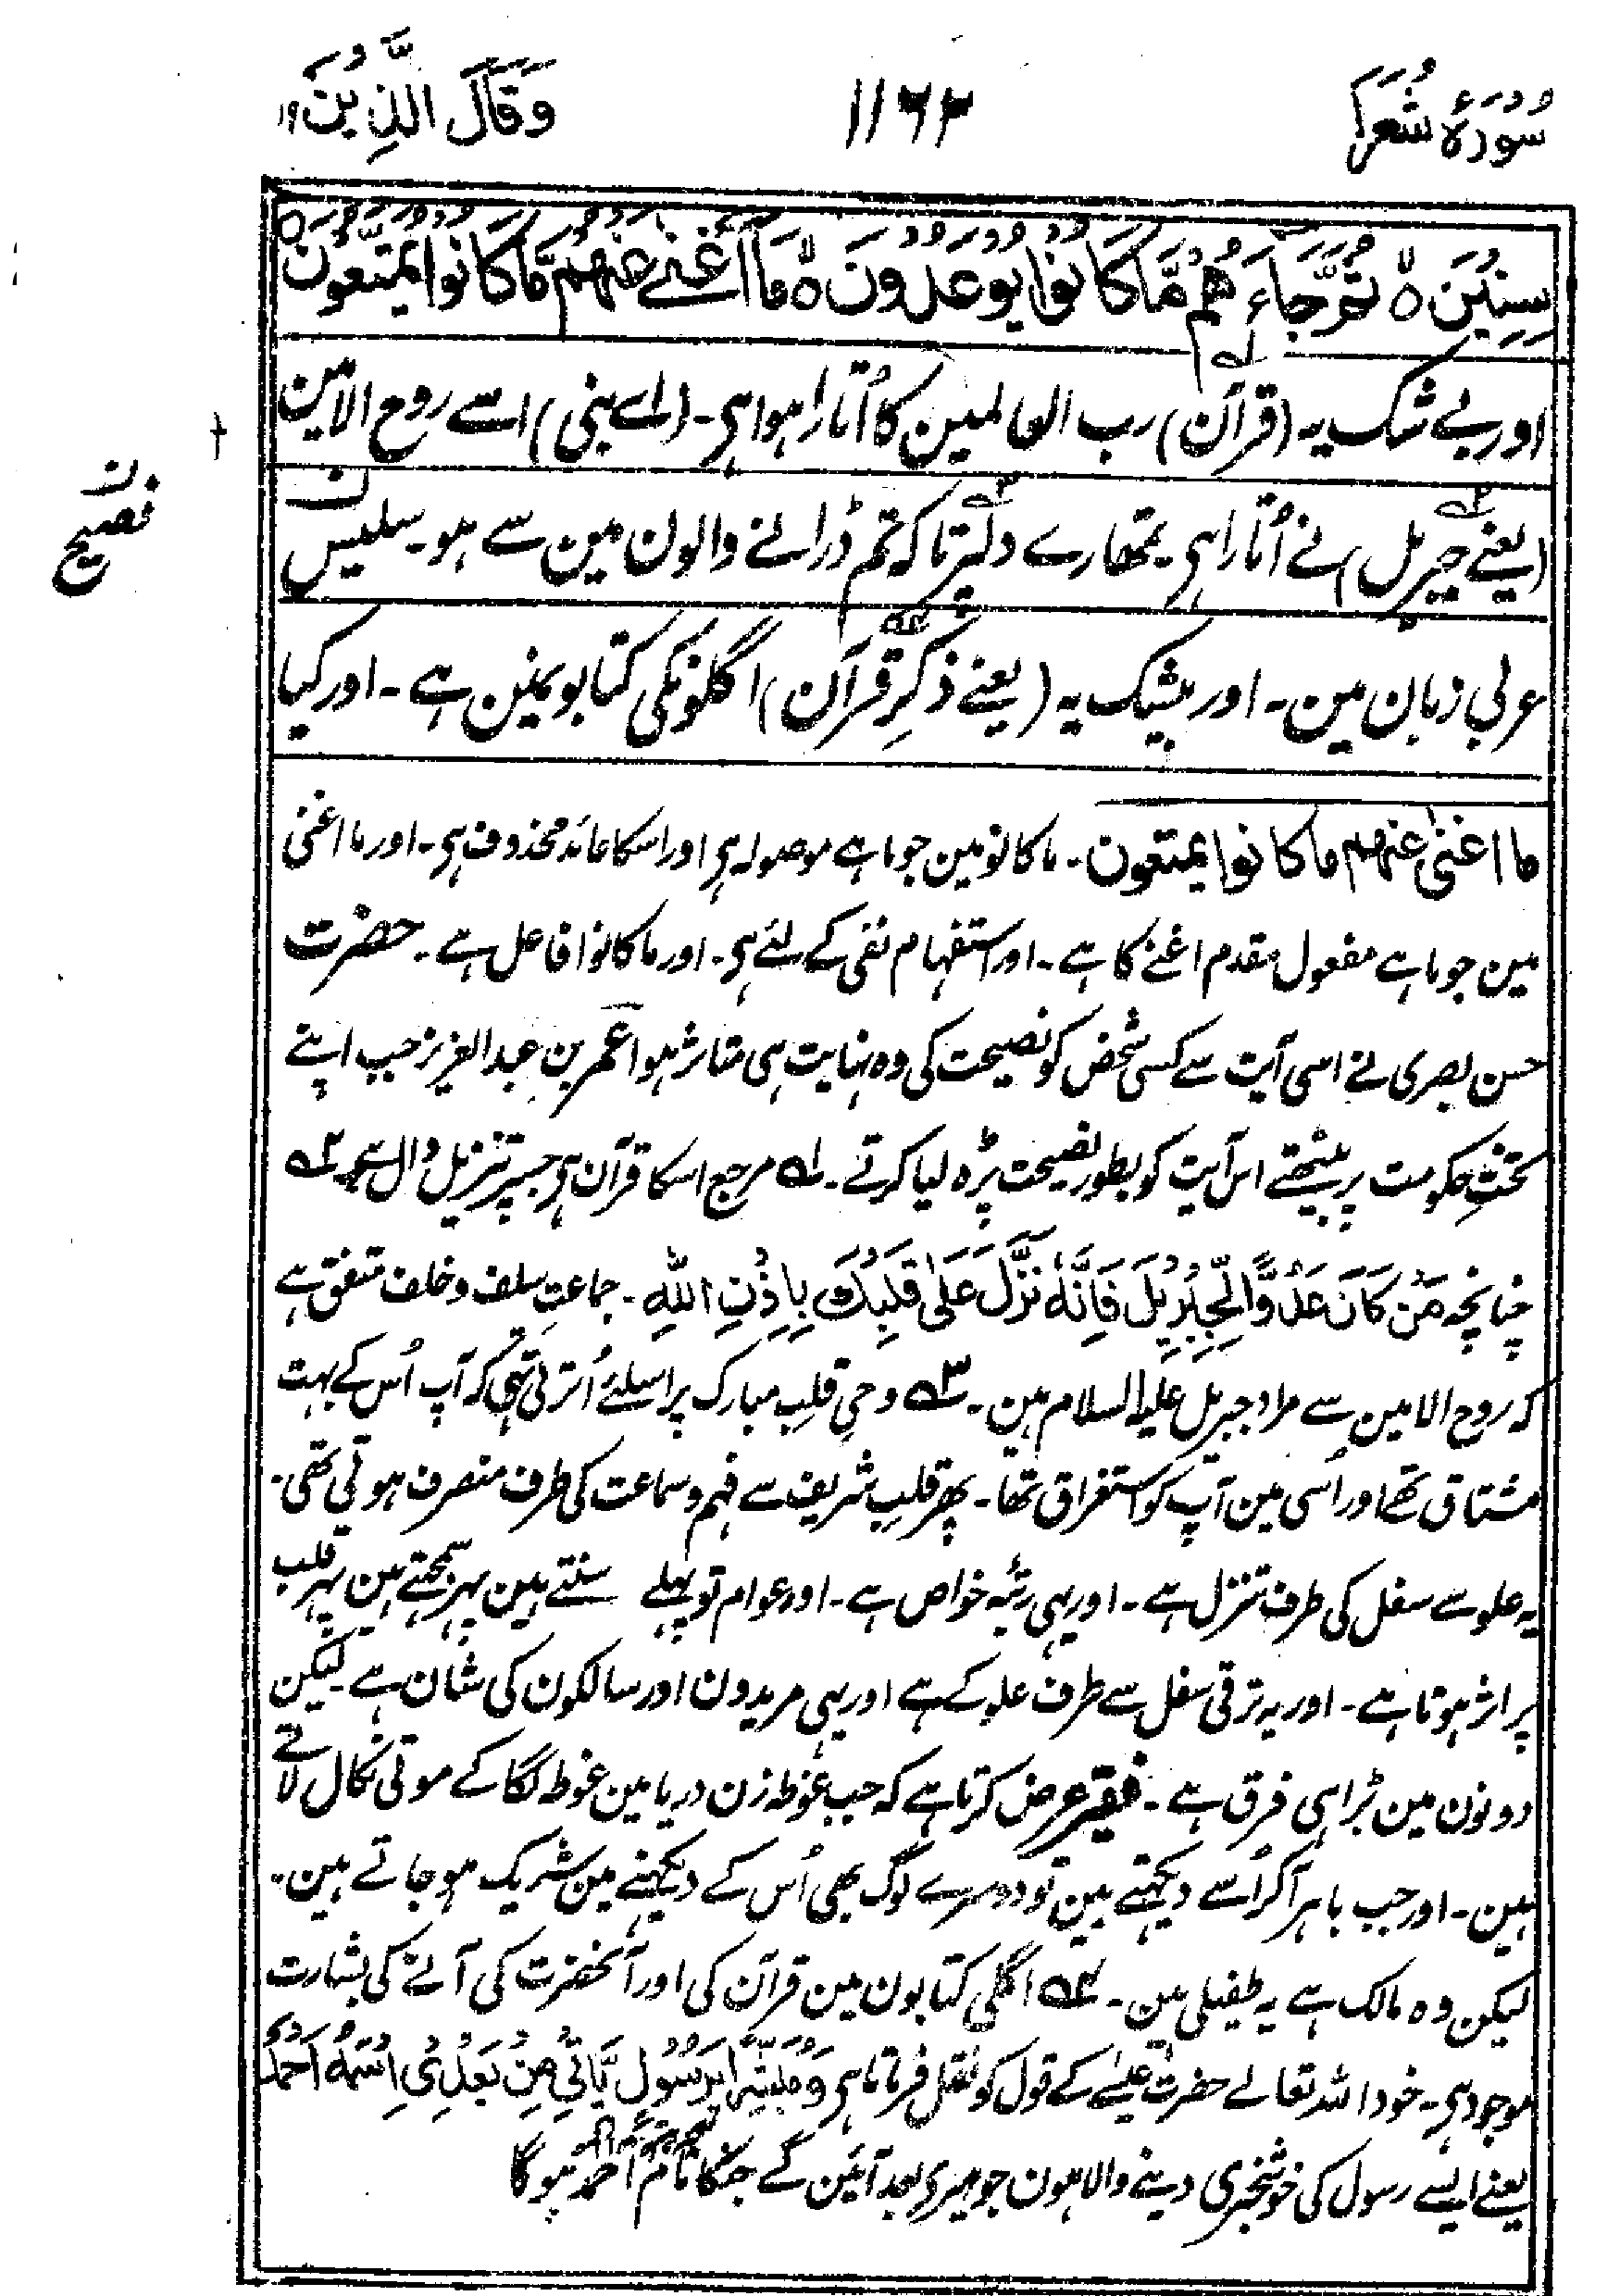 سُوْرَۃُ شُعَرَا ۱۱۶۲ وَقَالَ الَّذِیْنَ ۱۹
سِنِیْنَ ہ ثُمَّ جَآءَ هُمْ مَّا كَانُوْا یُوْعَدُوْنَ ہ مَآ اَغْنٰے عَنْهُمْ مَّا كَانُوْا یُمَتَّعُوْنَ ہ
اور بے شک یہ (قرآن) رب العالمین کا اُتارا ہوا ہی۔ (اے نبی) اسے روح الامین
(یعنے جبریل) نے اُتارا ہی۔ تمھارے دلپر تاکہ تم ڈرانے والون مین سے ہو۔ سلیس
ن
فصیح
عربی زبان مین۔ اور بیشک یہ (یعنے ذکرِ قرآن) اگلونکی کتابونمین ہے۔ اور کیا
ما اغنیٰ عنہم ما کانوا یمتعون۔ ما کانو مین جو ما ہے موصولہ ہی اور اسکا عائد محذوف ہی۔ اور ما اغنی
مین جو ما ہے مفعول مقدم اغنے کا ہے۔ اور استفہام نفی کے لئے ہی۔ اور ما کانوا فاعل ہے۔ حضرت
حسن بصری نے اسی آیت سے کسی شخص کو نصیحت کی وہ نہایت ہی متاثر ہوا عمر بن عبد العزیز جب اپنے
تختِ حکومت پر بیٹھتے اس آیت کو بطور نصیحت پڑہ لیا کرتے۔ ۱ہ مرجع اسکا قرآن ہی جسپر تنزیل دال ہی ۲ہ
چنانچہ مَنْ كَانَ عَدُوًّا لِّجِبْرِیْلَ فَاِنَّهٗ نَزَّلَهٗ عَلٰی قَلْبِكَ بِاِذْنِ اللهِ۔ جماعتِ سلف و خلف متفق ہے
کہ روح الامین سے مراد جبریل علیہ السلام ہین۔ ۳ہ وحی قلبِ مبارک پر اسلئے اُترتی تھی کہ آپ اُس کے بہت
مشتاق تھے اور اُسی مین آپ کو استغراق تھا۔ پھر قلبِ شریف سے فہم و سماعت کی طرف منصرف ہوتی تھی۔
یہ علو سے سفل کی طرف تنزل ہے۔ اور یہی رتبہ خواص ہے۔ اور عوام تو پہلے سنتے ہین پہر سمجھتے ہین پہر قلب
پر اثر ہوتا ہے۔ اور یہ ترقی سفل سے طرف علو کے ہے اور یہی مریدون اور سالکون کی شان ہے۔ لیکن
دونون مین بڑا ہی فرق ہے۔ فقیر عرض کرتا ہے کہ جب غوطہ زن دریا مین غوطہ لگا کے موتی نکال لاتے
ہین۔ اور جب باہر آ کر اُسے دیکھتے ہین تو دوسرے لوگ بھی اُس کے دیکھنے مین شریک ہو جاتے ہین۔
لیکن وہ مالک ہے یہ طفیلی ہین۔ ۴ہ اگلی کتابون مین قرآن کی اور آنحضرت کی آنے کی بشارت
موجود ہی۔ خود اللہ تعالے حضرت عیسٰے کے قول کو نقل فرماتا ہی وَمُبَشِّرًا بِرَسُوْلٍ یَّاْتِیْ مِنْ بَعْدِیْ اسْمُهٗ اَحْمَدُ
یعنے ایسے رسول کی خوشخبری دینے والا ہون جو میری بعد آئین گے جنکا نام احمد ہوگا